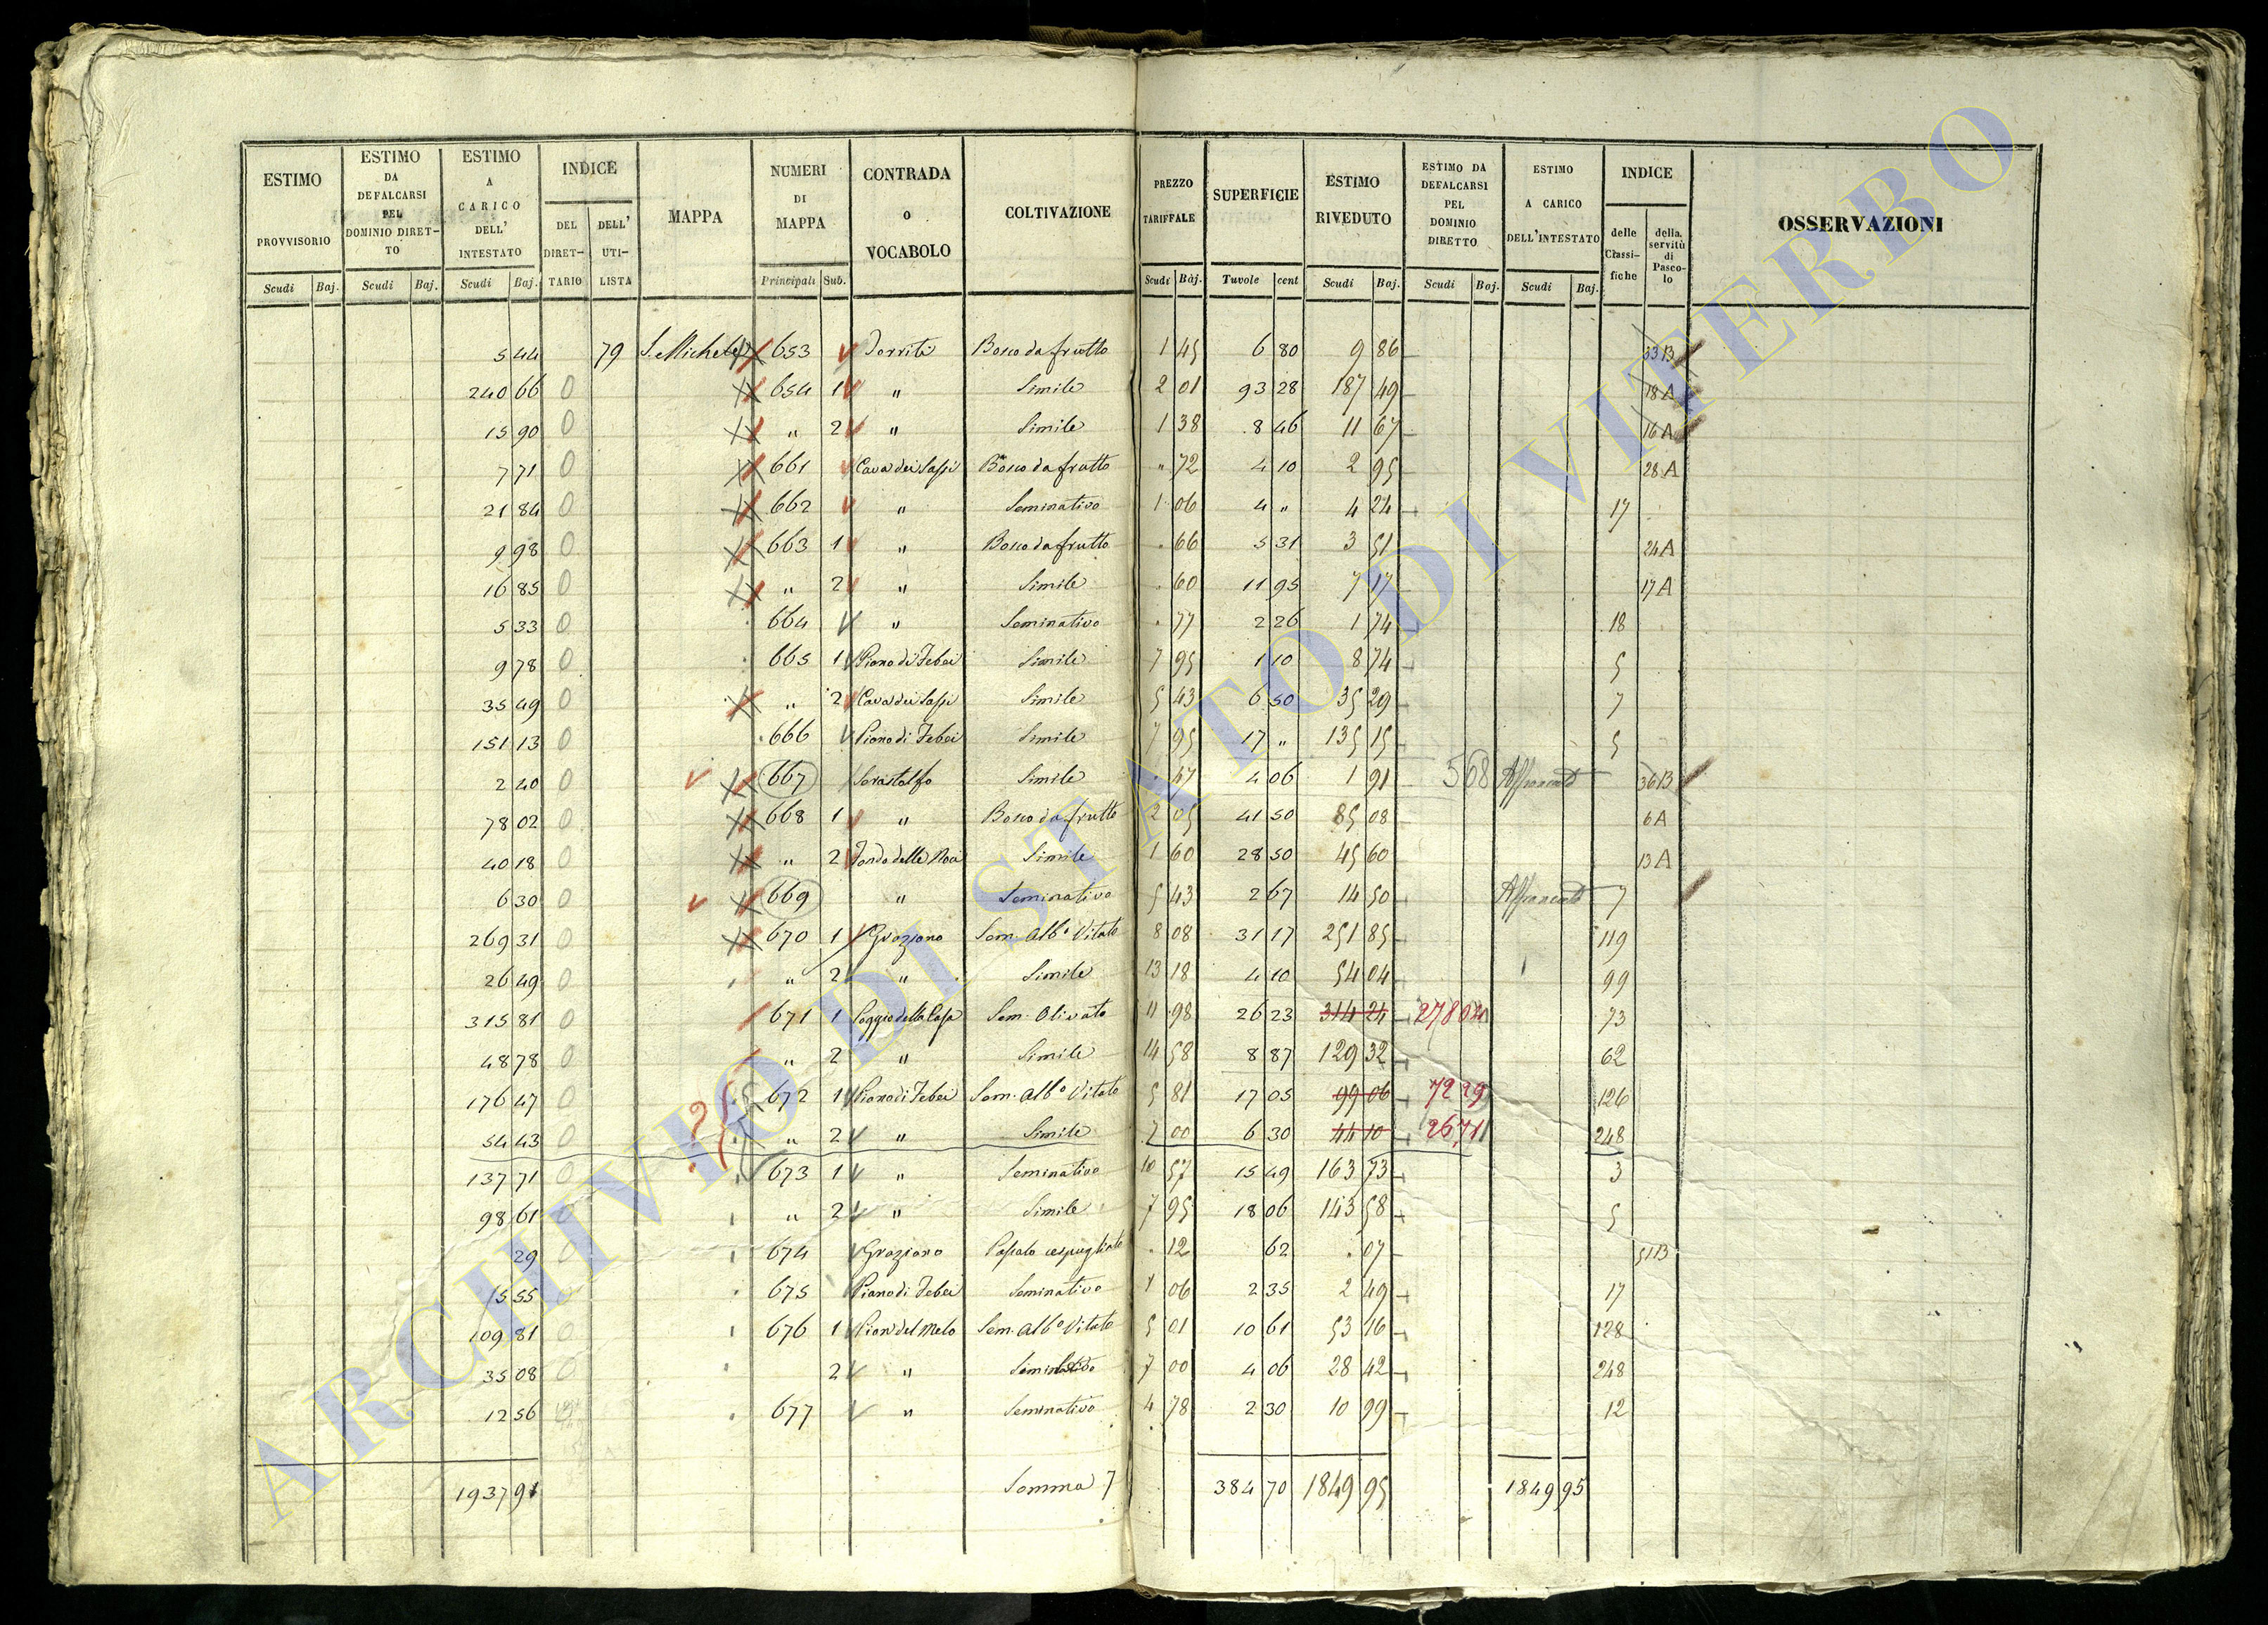 ESTIMO PROVVISORIO Scudi Baj.
ESTIMO DA DEFALCARSI PEL DOMINIO DIRET- TO Scudi Baj.
ESTIMO A CARICO DELL' INTESTATO Scudi Baj.
INDICE DEL DIRET- TARIO DELL' UTI- LISTA
MAPPA
NUMERI DI MAPPA Principali Sub.
CONTRADA O VOCABOLO
COLTIVAZIONE
PREZZO TARIFFALE Scudi Baj.
SUPERFICIE Tavole cent
ESTIMO RIVEDUTO Scudi Baj.
ESTIMO DA DEFALCARSI PEL DOMINIO DIRETTO Scudi Baj.
ESTIMO A CARICO DELL'INTESTATO Scudi Baj.
INDICE delle Classi- fiche della servitù di Pasco- lo
OSSERVAZIONI
5 44 79 S. Michele 653 Bosco da frutto 1 45 6 80 9 86 33B
240 66 0 654 1 " Simile 2 01 93 28 187 49 18A
15 90 0 " 2 " Simile 1 38 8 46 11 67 16A
7 71 0 661 Cava dei Sassi Bosco da frutto " 72 4 10 2 95 28A
21 84 0 662 " Seminativo 1 06 4 " 4 24 17
9 98 0 663 1 " Bosco da frutto . 66 5 31 3 51 24A
16 85 0 " 2 " Simile . 60 11 95 7 17 17A
5 33 0 664 " Seminativo . 77 2 26 1 74 18
9 78 0 665 1 Piano di Febei Simile 7 95 1 10 8 74 5
35 49 0 " 2 Cava dei Sassi Simile 5 43 6 50 35 29 7
151 13 0 666 Piano di Febei Simile 7 95 17 " 135 15 5
2 40 0 667 Simile . 47 4 06 1 91 568 Affrancato 36B
78 02 0 668 1 " Bosco da frutto 2 05 41 50 85 08 6A
40 18 0 " 2 Fondo delle Noci Simile 1 60 28 50 45 60 13A
6 30 0 669 " Seminativo 5 43 2 67 14 50 Affrancato 7
269 31 0 670 1 Graziano Sem. Alb.o Vitato 8 08 31 17 251 85 119
26 49 0 " 2 " Simile 13 18 4 10 54 04 99
315 81 0 671 1 Poggio della Casa Sem. Olivato 11 98 26 23 314 24 278 04 73
48 78 0 " 2 " Simile 14 58 8 87 129 32 62
176 47 0 672 1 Piano di Febei Sem. Alb.o Vitato 5 81 17 05 99 06 72 29 126
54 43 0 " 2 " Simile 7 00 6 30 44 10 26 71 248
137 71 0 673 1 " Seminativo 10 57 15 49 163 73 3
98 61 0 " 2 " Simile 7 95 18 06 143 58 5
29 0 674 Graziano Pascolo cespugliato . 12 62 . 07 51B
15 55 0 675 Piano di Febei Seminativo 1 06 2 35 2 49 17
109 81 0 676 1 Pian del Melo Sem. Alb.o Vitato 5 01 10 61 53 16 128
35 08 0 2 " 7 00 4 06 28 42 248
12 56 677 " Seminativo 4 78 2 30 10 99 12
1937 91 Somma 384 70 1849 95 1849 95
ARCHIVIO DI STATO DI VITERBO